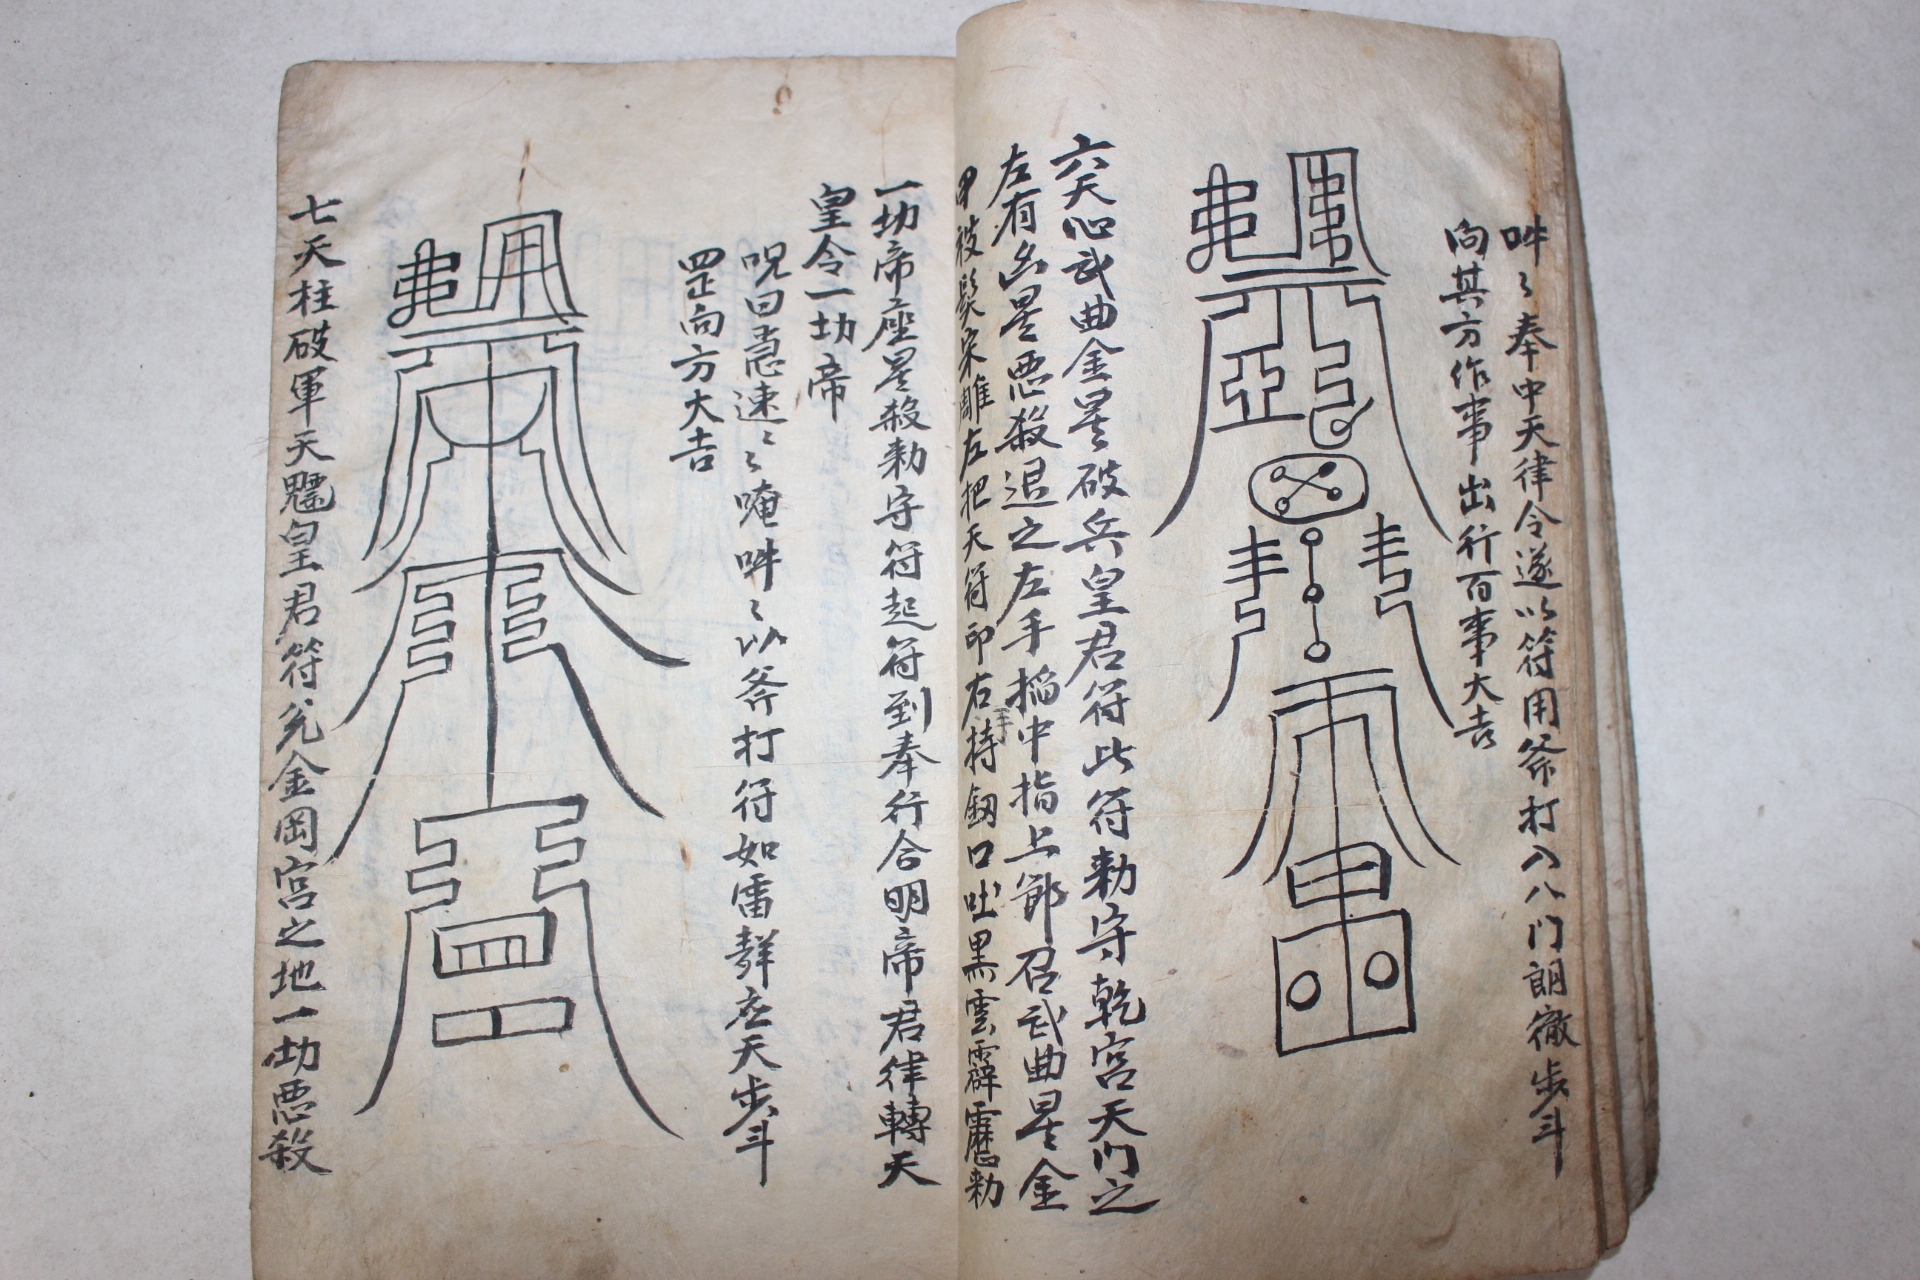 吽〻奉中天律令遂以符用斧打入八门朗徹步斗
向其方作事出行百事大吉
六天心武曲金星破兵皇君符此符勅守乾宮天门之
左有凶星惡殺退之左手搯中指上節召武曲星金
甲被髮宋雕左把天符印右手持釼口吐黑雲霹靂勅
一切帝座星殺勅守符起符到奉行合明帝君律轉天
皇令一切帝
呪曰急速〻唵吽〻以斧打符如雷聲应天步斗
罡向方大吉
七天柱破軍天魁皇君符兊金岡宮之地一切惡殺